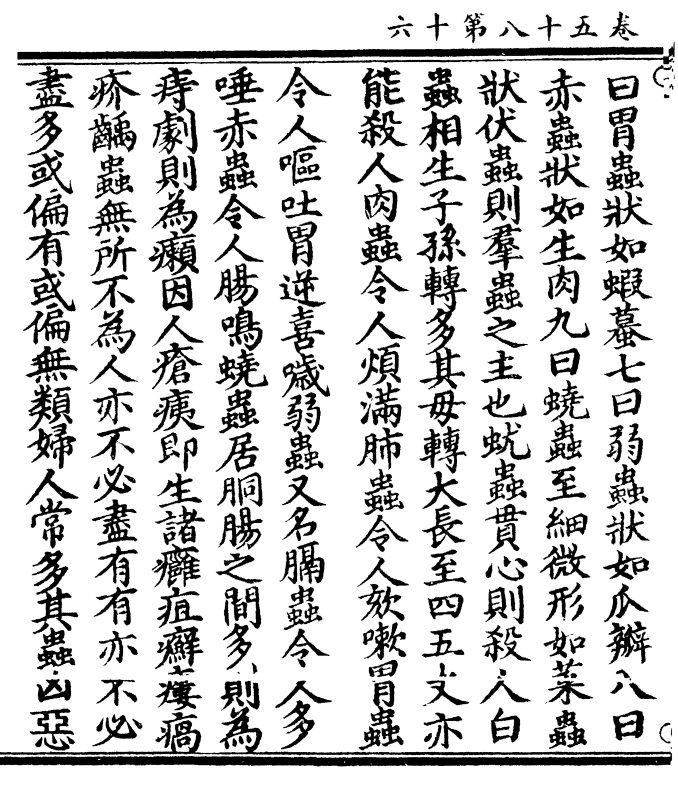 卷五十八第十六
曰胃蟲狀如蝦蟇七曰弱蟲狀如瓜瓣八曰
赤蟲狀如生肉九曰蟯蟲至細微形如菜蟲
狀伏蟲則羣蟲之主也蚘蟲貫心則殺人白
蟲相生子孫轉多其母轉大長至四五丈亦
能殺人肉蟲令人煩滿肺蟲令人欬嗽胃蟲
令人嘔吐胃逆喜噦弱蟲又名膈蟲令人多
唾赤蟲令人腸鳴蟯蟲居胴腸之間多則為
痔劇則為癩因人瘡痍即生諸癰疽癬瘻瘑
疥齲蟲無所不為人亦不必盡有有亦不必
盡多或偏有或偏無類婦人常多其蟲凶惡